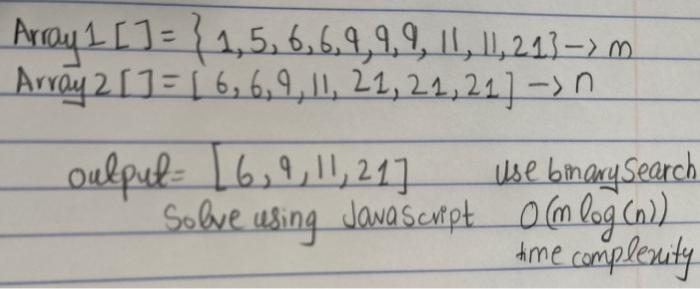 Array 1 [] = { 1, 5, 6, 6, 9, 9, 9, 11, 11, 21} -> m
Array 2 [] = [ 6, 6, 9, 11, 21, 21, 21 ] -> n
output = [6, 9, 11, 21] use binary Search
Solve using Javascript O(m log(n))
time complexity